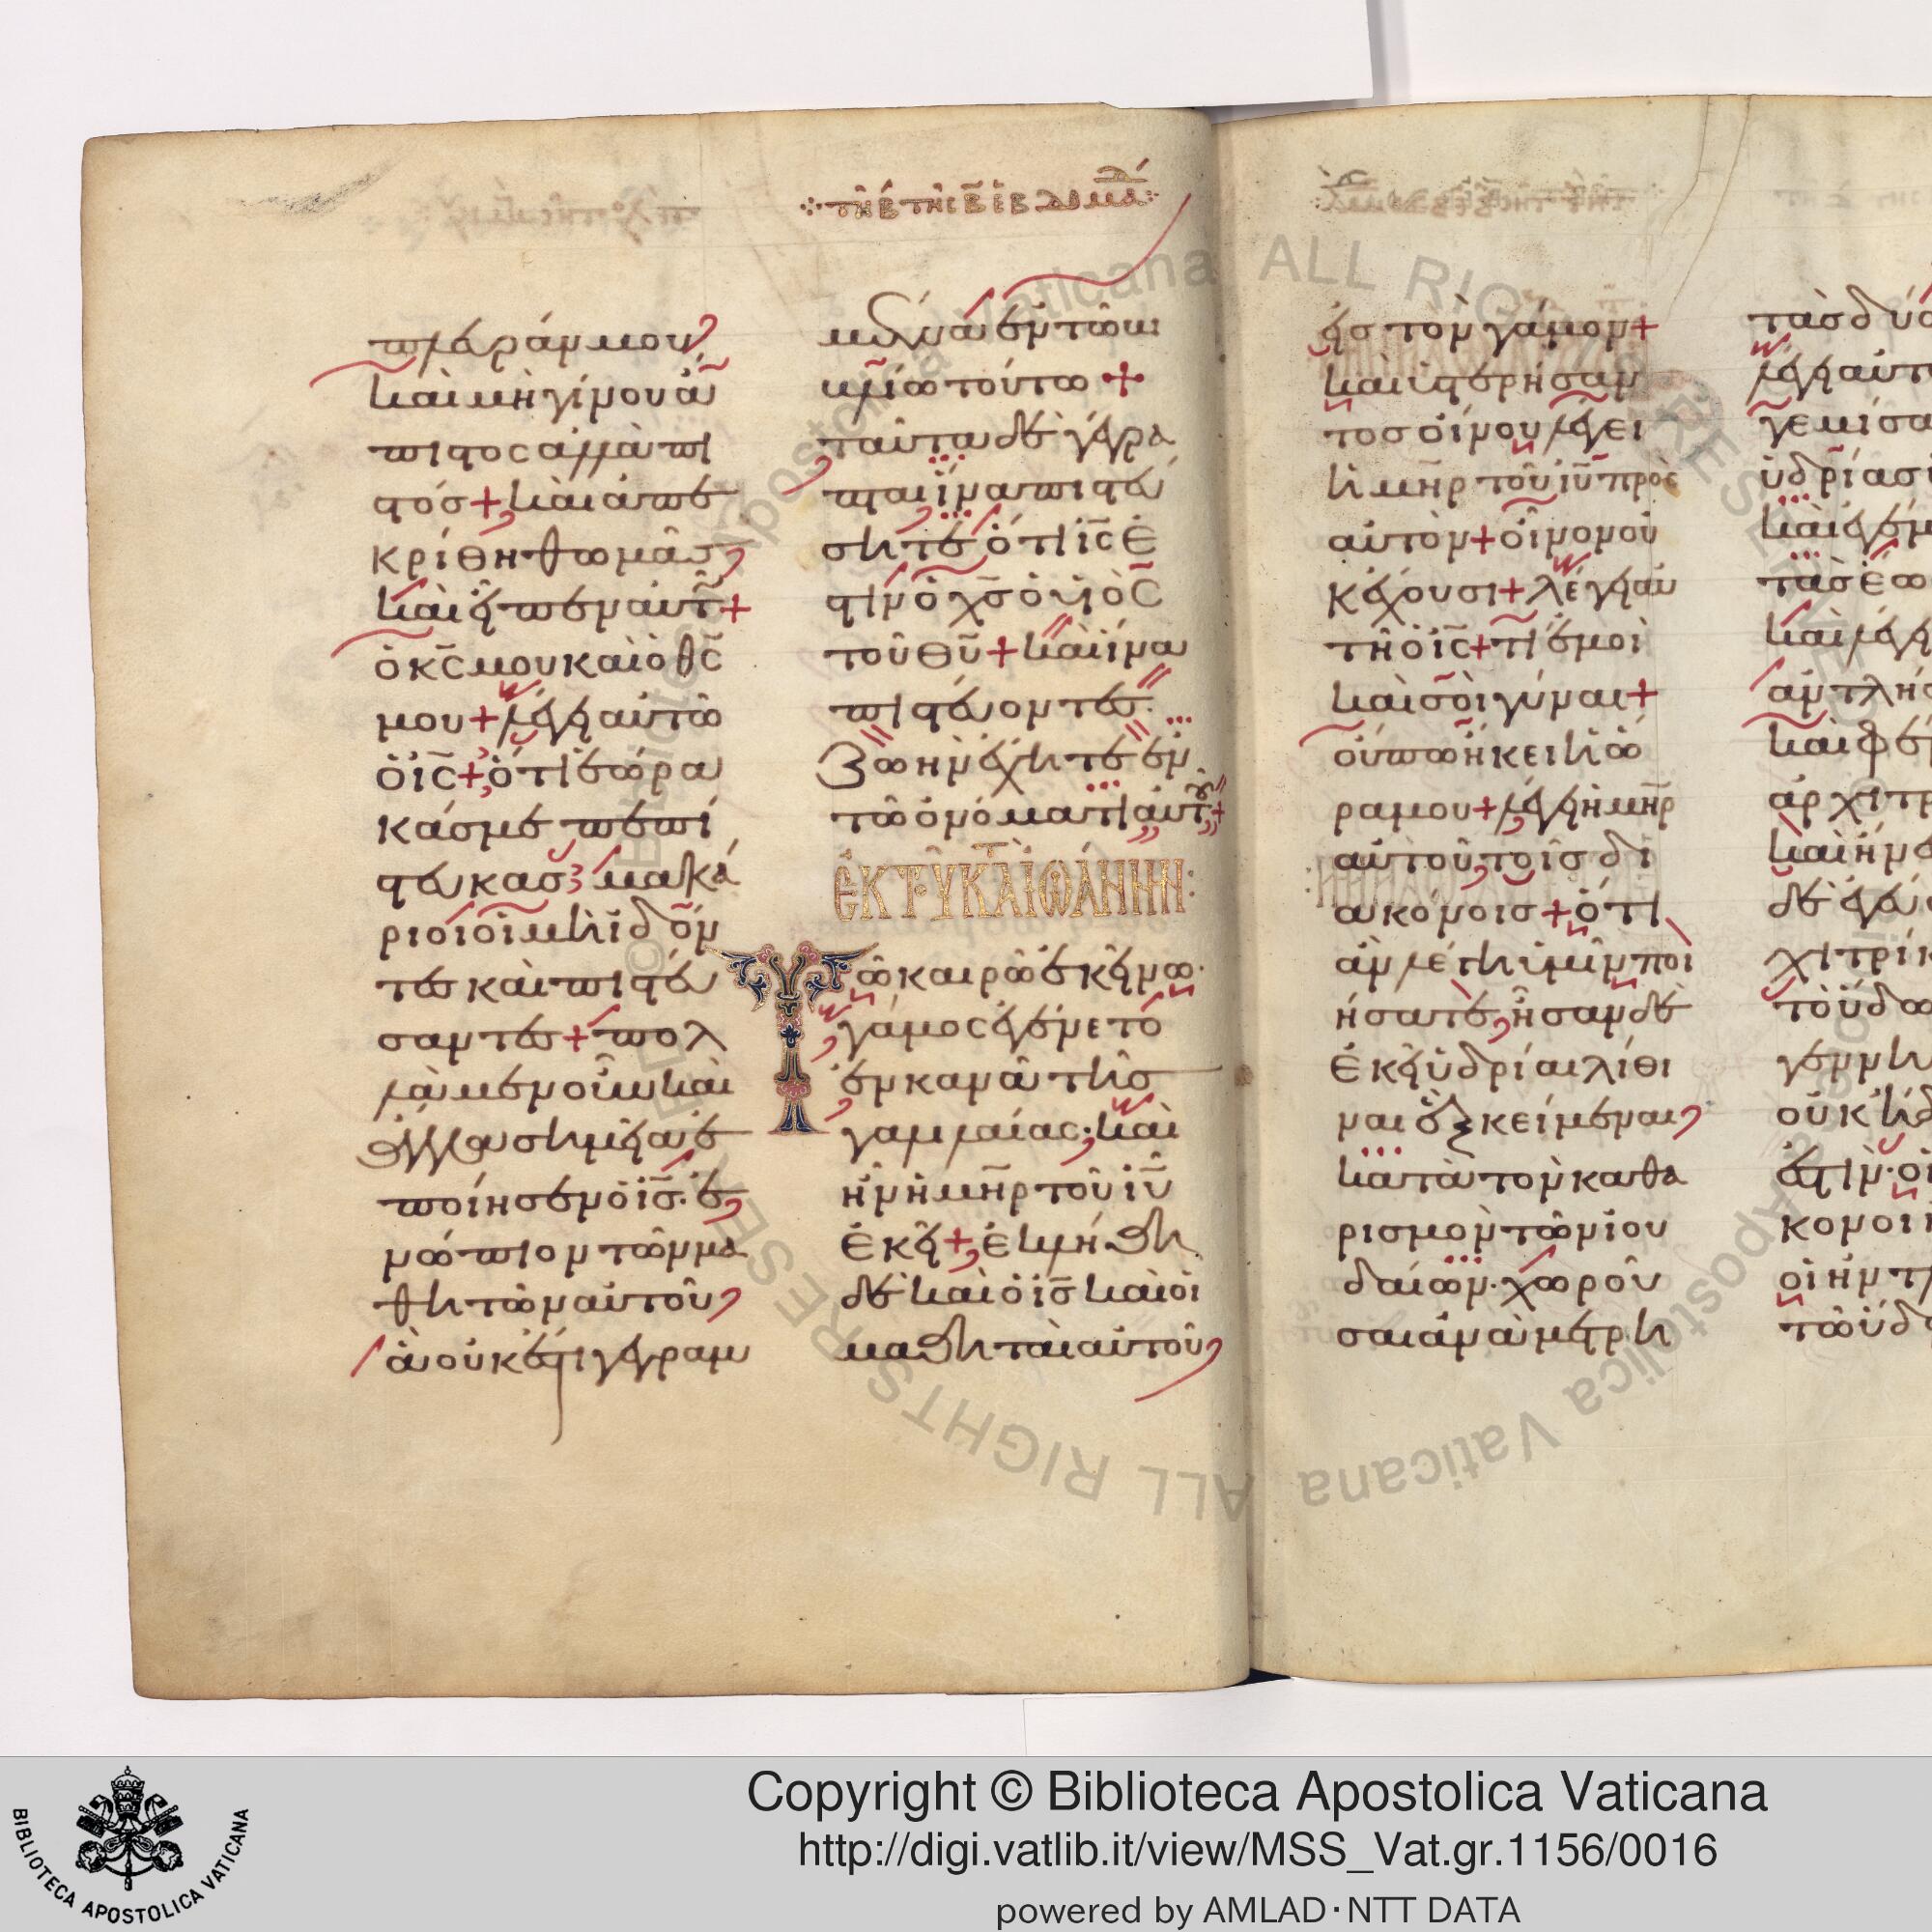 τῆ β τῆς β ἑβδομάδ
πλευράν μου
καὶ μὴ γίνου ἄ
πιστος ἀλλὰ πι
στός + καὶ ἀπε
κρίθη θωμᾶς
καὶ εἶπεν αὐτ +
ὁ κς μου καὶ ὁ θς
μου + λέγει αὐτῶ
ὁ ις + ὅτι ἑώρα
κάς με πεπί
στευκας μακά
ριοι οἱ μὴ ἰδόν
τες καὶ πιστεύ
σαντες + πολ
λὰ μὲν οὖν καὶ
ἄλλα σημεῖα ἐ
ποίησεν ὁ ις ἐ
νώπιον τῶν μα
θητῶν αὐτοῦ
ἃ οὐκ ἔστι γεγραμ
μένα ἐν τῶ βι
βλίω τούτω +
ταῦτα δὲ γέγρα
πται ἵνα πιστεύ
σητε ὅτι ις ἐ
στὶν ὁ χς ὁ υἱὸς
τοῦ θυ + καὶ ἵνα
πιστεύοντες
ζωὴν ἔχητε ἐν
τῶ ὀνόματι αὐτοῦ +
ἐκ τοῦ κατὰ ἰωάννην:
Τῶ καιρῶ ἐκείνω
γάμος ἐγένετο
ἐν κανᾶ τῆς
γαλιλαίας καὶ
ἦν ἡ μηρ τοῦ ιυ
ἐκεῖ + ἐκλήθη
δὲ καὶ ὁ ις καὶ οἱ
μαθηταὶ αὐτοῦ
εἰς τὸν γάμον +
καὶ ὑστερήσαν
τος οἴνου λέγει
ἡ μηρ τοῦ ιυ πρὸς
αὐτόν + οἶνον οὐ
κ ἔχουσι + λέγει αὐ
τῆ ὁ ις + τί ἐμοὶ
καὶ σοὶ γύναι +
οὔπω ἥκει ἡ ὥ
ρα μου + λέγει ἡ μηρ
αὐτοῦ τοῖς δι
ακόνοις + ὅτι
ἂν λέγη ὑμῖν ποι
ήσατε ἦσαν δὲ
ἐκεῖ ὑδρίαι λίθι
ναι ἓξ κείμεναι
κατὰ τὸν καθα
ρισμὸν τῶν ἰου
δαίων χωροῦ
σαι ἀνὰ μετρη
τὰς δύο
λέγει αὐτ
γεμίσα
ὑδρίας
καὶ ἐγέμ
τὰς ἕω
καὶ λέγ
ἀντλήσ
καὶ φέ
ἀρχιτρ
καὶ ἤνε
δὲ ἐγεύ
χιτρίκ
τὸ ὕδω
γενη
οὐκ ἤδ
ἐστίν οἱ
κονοι
οἱ ἠντλ
τῶ ὕδ
Copyright © Biblioteca Apostolica Vaticana
http://digi.vatlib.it/view/MSS_Vat.gr.1156/0016
powered by AMLAD·NTT DATA
BIBLIOTECA APOSTOLICA VATICANA